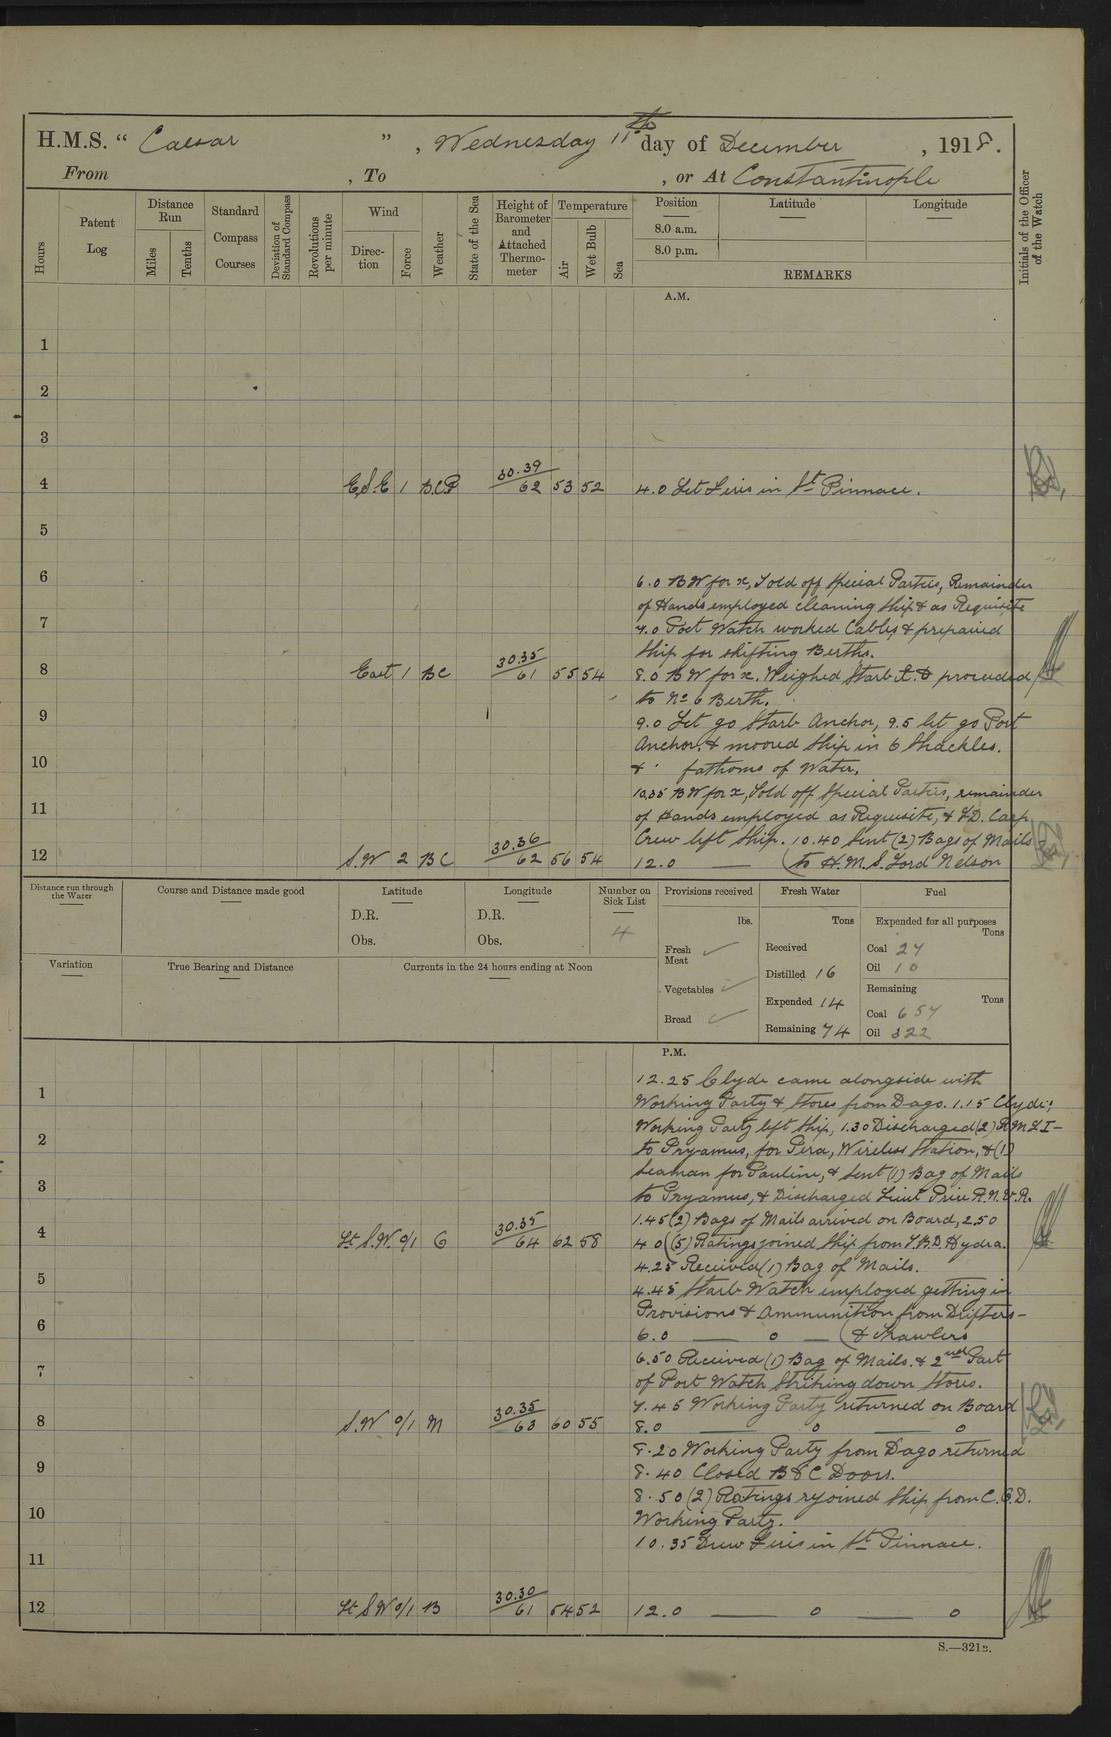 H.M.S. " Caesar ", Wednesday 11th day of December, 1918.
From , To , or At Constantinople
Hours
Patent Log
Distance Run
Miles
Tenths
Standard Compass Courses
Deviation of Standard Compass
Revolutions per minute
Wind
Direction
Force
Weather
State of the Sea
Height of Barometer and Attached Thermometer
Temperature
Air
Wet Bulb
Sea
Position
Latitude
Longitude
8.0 a.m.
8.0 p.m.
REMARKS
Initials of the Officer of the Watch
A.M.
1
2
3
4 E.S.E 1 B.C.P 30.39 62 53 52 4.0 Let Fires in St Pinnace.
5
6 6.0 B W for x, Told off Special Parties, Remainder
of Hands employed cleaning Ship & as Requisite
7 7.0 Port Watch worked Cables & prepared
Ship for shifting Berths.
8 East 1 BC 30.35 61 55 54 8.0 B W for x. Weighed Starb A. & proceeded
to No 6 Berth.
9 9.0 Let go Starb Anchor, 9.5 let go Port
Anchor, & moored Ship in 6 Shackles.
10 & fathoms of Water.
10.35 B W for x, Told off Special Parties, remainder
11 of Hands employed as Requisite, & F.D. Carp
Crew left Ship. 10.40 Sent (2) Bags of Mails
12 S.W 2 BC 30.36 62 56 54 12.0 — (to H.M.S. Lord Nelson
Distance run through the Water
Course and Distance made good
Latitude
D.R.
Obs.
Longitude
D.R.
Obs.
Number on Sick List
4
Provisions received
lbs.
Fresh Meat ✓
Vegetables ✓
Bread ✓
Fresh Water
Tons
Received
Distilled 16
Expended 14
Remaining 74
Fuel
Expended for all purposes
Tons
Coal 27
Oil 10
Remaining
Tons
Coal 657
Oil 322
Variation
True Bearing and Distance
Currents in the 24 hours ending at Noon
P.M.
12.25 Clyde came alongside with
1 Working Party & Stores from Dago. 1.15 Clyde:
2 Working Party left Ship, 1.30 Discharged (2) R M L I —
to Pryamus, for Pera, Wireless Station, & (1)
Seaman for Pauline, & Sent (1) Bag of Mails
3 to Pryamus, & Discharged Lieut Price R.N.V.R.
1.45 (2) Bags of Mails arrived on Board, 2.50
4 Lt S.W. 0/1 C 30.35 64 62 58 4 0 ((5) Ratings joined Ship from T.B.D Hydra.
4.25 Received (1) Bag of Mails.
5 4.45 Starb Watch employed getting in
Provisions & Ammunition from Drifters —
6 6.0 — 0 — (& Trawlers
6.50 Received (1) Bag of Mails. & 2nd Part
7 of Port Watch Striking down Stores.
7.45 Working Party returned on Board
8 S.W 0/1 M 30.35 63 60 55 8.0 — 0 — 0
8.20 Working Party from Dago returned
9 8.40 Closed B & C Doors.
8.50 (2) Ratings rejoined Ship from
10 Working Party.
10.35 Drew Fires in St Pinnace.
11
12 Lt S.W 0/1 B 30.30 61 54 52 12.0 — 0 — 0
S.—321B.